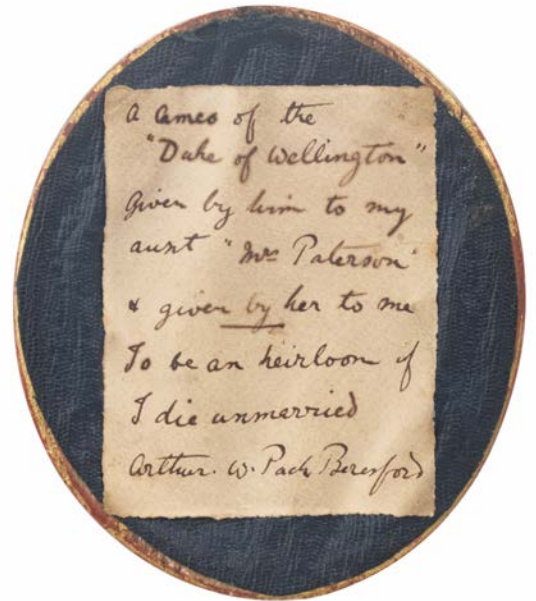 A Cameo of the
"Duke of Wellington"
Given by him to my
aunt "Mrs Paterson"
& given by her to me
To be an heirloom if
I die unmarried
Arthur. W. Pack Beresford